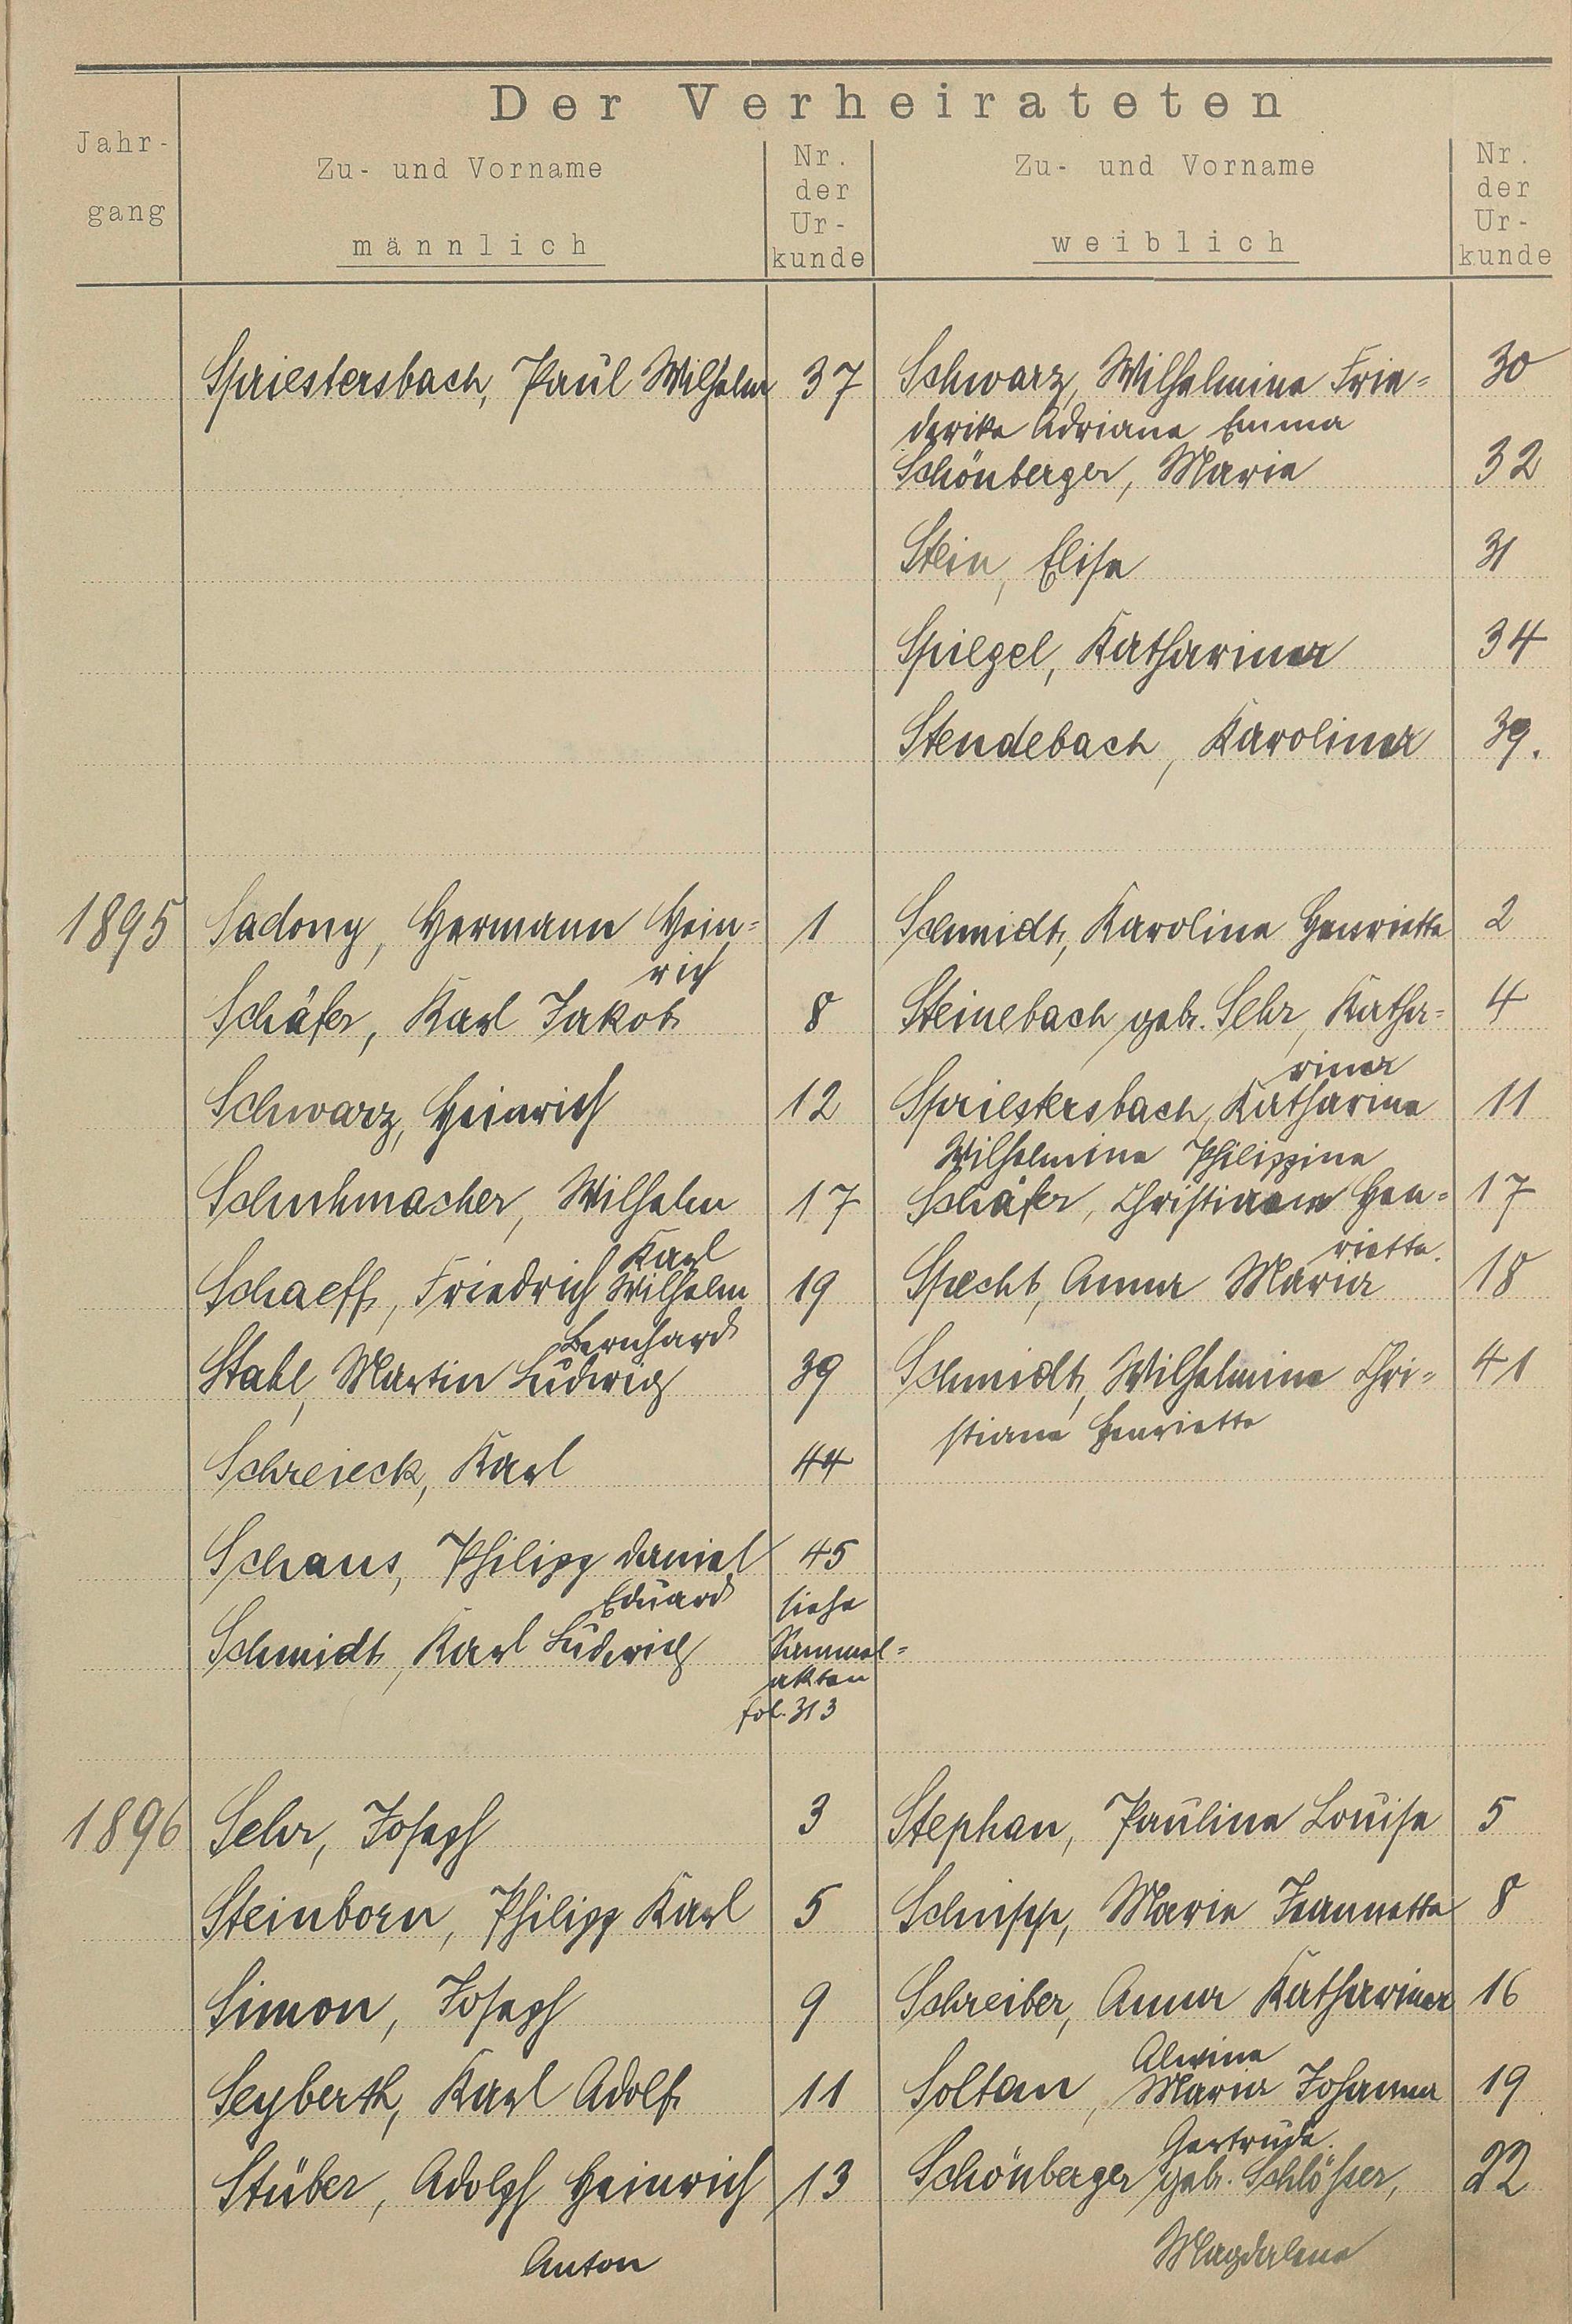 Der Verheirateten
Jahr-
gang
Zu- und Vorname
männlich
Nr.
der
Ur-
kunde
Zu- und Vorname
weiblich
Nr.
der
Ur-
kunde
Spriestersbach, Paul Wilhelm 37 Schwarz, Wilhelmine Frie= 30
derike Adriane Emma
Schönberger, Marie 32
Stein, Elise 31
Spiegel, Katharina 34
Stendebach, Karolina 39.
1895 Sadony, Hermann Hein= 1 Schmidt, Karoline Henriette 2
rich
Schäfer, Karl Jakob 8 Steinebach geb. Sehr, Katha= 4
rina
Schwarz, Heinrich 12 Spriestersbach, Katharine 11
Wilhelmine Philippine
Schuhmacher, Wilhelm 17 Schäfer, Christiane Hen= 17
Karl riette.
Schaeff, Friedrich Wilhelm 19 Specht, Anna Maria 18
Bernhard
Stahl, Martin Ludwig 39 Schmidt, Wilhelmine Chri= 41
stiane Henriette
Schreieck, Karl 44
Schaus, Philipp Daniel 45
Eduard siehe
Schmidt, Karl Ludwig Sammel=
akten
fol. 313
1896 Sehr, Joseph 3 Stephan, Pauline Louise 5
Steinborn, Philipp Karl 5 Schupp, Marie Jeannette 8
Simon, Joseph 9 Schreiber, Anna Katharina 16
Alwine
Seyberth, Karl Adolf 11 Soltau, Maria Johanna 19
Gertrude.
Stüber, Adolph Heinrich 13 Schönberger geb. Schlösser, 22
Anton Magdalena